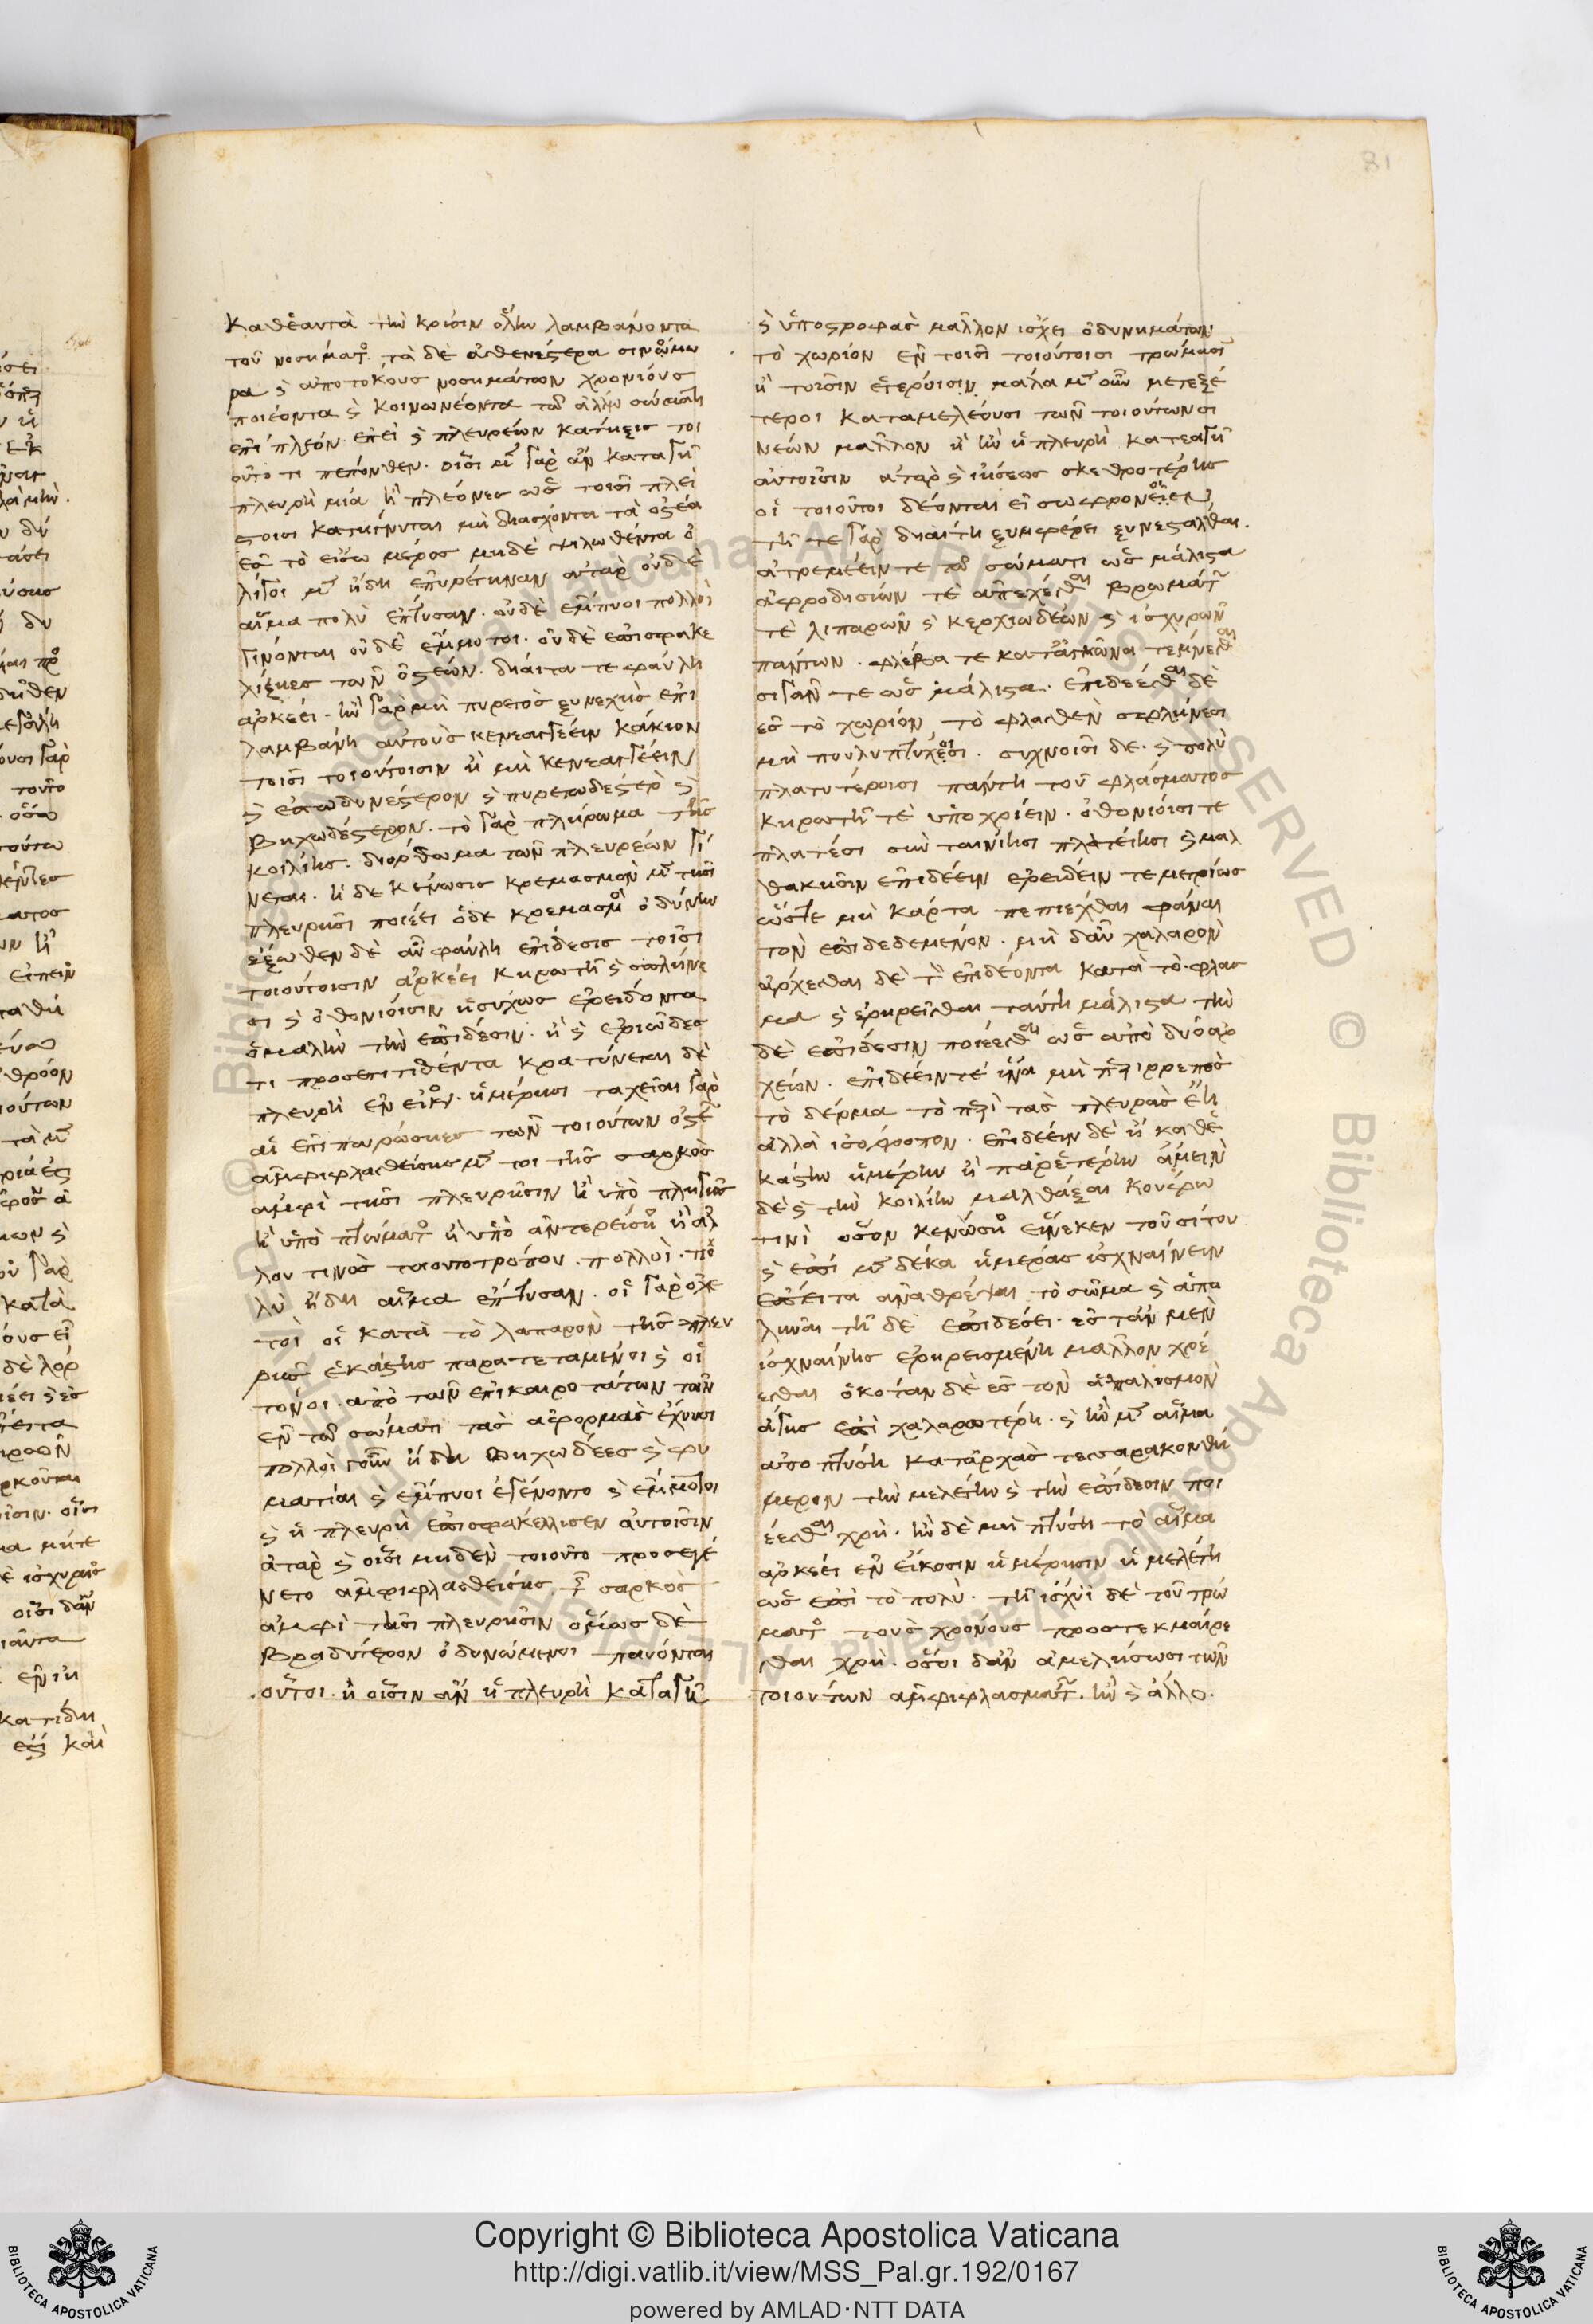 81
καθ' ἑαυτὰ τὴν κρίσιν ὅλην λαμβάνοντα
τοῦ νοσήματ. τὰ δὲ ἀσθενέστερα σινώμω
ρα ϗ ἀποτόκους νοσημάτων χρονιόυς
ποιέοντα ϗ κοινωνέοντα τῶ ἄλλω σώματι
ἐπὶ πλέον. ἐπεὶ ϗ πλευρέων κατηξις τοι
οῦτό τι πεπόνθεν. οἷσι μ̃ γὰρ ἂν καταγῆ
πλευρὴ μιά ἢ πλέονες ὡς τοῖσι πλεί
στοισι κατήγνυται μὴ διασχόντα τὰ ὀστέα
ἐς τὸ εἴσω μέρος μηδὲ ψιλωθέντα ὀ
λίγοι μ̃ ἤδη ἐπυρέτηναν ἀτὰρ οὐδὲ
αἷμα πολὺ ἔπτυσαν. οὐδὲ ἔμπυοι πολλοὶ
γίνονται οὐδὲ ἔμμοτοι. οὐδὲ ἐπισφακε
λίξιες τῶν ὀστέων. δίαιτα τε φαύλη
ἀρκέει. ἢν γὰρ μὴ πυρετὸς ξυνεχὴς ἐπι
λαμβάνη αὐτοὺς κενεαγγέειν κάκιον
τοῖσι τοιούτοισιν ἢ μὴ κενεαγγέειν
ϗ ἐπωδυνέστερον ϗ πυρετωδέστερ ϗ
βηχωδέστερον. τὸ γὰρ πλήρωμα τῆς
κοιλίης. διόρθωμα τῶν πλευρέων γί
νεται. ἡ δὲ κένωσις κρεμασμὸν μ̃ τῆσι
πλευρῆσι ποιέει ὅδε κρεμασμὸ ὀδύνην
ἔξωθεν δὲ αὖ φαύλη ἐπίδεσις τοῖσι
τοιούτοισιν ἀρκέει κηρωτῆ ϗ σπλήνε
σι ϗ ὀθονίοισιν ἡσύχως ἐρείδοντα
ὁμαλὴν τὴν ἐπίδεσιν. ἢ ϗ ἐριῶδες
τι προσεπιτιθέντα κρατύνεται δὲ
πλευρὴ ἐν εἴκ. ἡμέρησι ταχεῖαι γὰρ
αἱ ἐπιπωρώσιες τῶν τοιούτων ὀστέ
ἀμφιφλασθείσης μ̃ τοι τῆς σαρκὸς
ἀμφὶ τῆσι πλευρῆσιν ἢ ὑπὸ πληγῆς
ἢ ὑπὸ πτώματ ἢ ὑπὸ ἀντερείσι ἢ ἄλ
λου τινὸς τοιουτοτρόπου. πολλοὶ. πο
λὺ ἤδη αἷμα ἔπτυσαν. οἱ γὰρ ὀχε
τοὶ οἱ κατὰ τὸ λαπαρὸν τῆς πλευ
ρῆς ἑκάστης παρατεταμένοι ϗ οἱ
τόνοι. ἀπὸ τῶν ἐπικαιροτάτων τῶν
ἐν τῶ σώματι τὰς ἀφορμὰς ἔχουσι
πολλοὶ γοῦν ἤδη βηχώδεες ϗ φυ
ματίαι ϗ ἔμπυοι ἐγένοντο ϗ ἔμμοτοι
ϗ ἡ πλευρὴ ἐπισφακέλλισεν αὐτοῖσιν
ἀτὰρ ϗ οἷσι μηδὲν τοιοῦτο προσεγέ
νετο ἀμφιφλασθείσης τ σαρκὸς
ἀμφὶ τῆσι πλευρῆσιν ὅμως δὲ
βραδύτερον ὀδυνώμενοι παύονται
οὗτοι. ἢ οἷσιν ἂν ἡ πλευρὴ καταγῆ
ϗ ὑποστροφὰς μᾶλλον ἴσχει ὀδυνημάτων
τὸ χωρίον ἐν τοῖσι τοιούτοισι τρώμασι
ἢ τοῖσιν ἑτέροισιν μάλα μ̃ οὖν μετεξέ
τεροι καταμελέουσι τῶν τοιούτων σι
νέων μᾶλλον ἢ ἢν ἡ πλευρὴ κατεαγῆ
αὐτοῖσιν ἀτὰρ ϗ ἰήσεως σκεθροτέρης
οἱ τοιοῦτοι δέονται εἰ σωφρονέοιεν
τῆ τε γὰρ διαίτη ξυμφέρει ξυνεστάλθαι.
ἀτρεμέειν τε τῶ σώματι ὡς μάλιστα
ἀφροδισίων τὲ ἀπέχεσθαι βρωμάτ
τὲ λιπαρῶν ϗ κερχνωδέων ϗ ἰσχυρῶν
πάντων. φλέβα τε κατἀγκῶνα τέμνεσθαι
σιγᾶν τε ὡς μάλιστα. ἐπιδέεσθαι δὲ
ἐς τὸ χωρίον τὸ φλασθὲν σπλήνεσι
μὴ πουλυπτύχεσι. συχνοῖσι δε. ϗ πολὺ
πλατυτέροισι πάντη τοῦ φλάσματος
κηρωτῆ τὲ ὑποχρίειν. ὀθονίοισι τε
πλατέσι σὺν ταινίησι πλατείησι ϗ μαλ
θακῆσιν ἐπιδέειν ἐρείδειν τε μετρίως
ὥστε μὴ κάρτα πεπιέχθαι φάναι
τὸν ἐπιδεδεμένον. μὴ δ' ἂν χαλαρὸν
ἄρχεσθαι δὲ τ ἐπιδέοντα κατὰ τὸ φλασ
μα ϗ ἐρηρεῖσθαι ταύτη μάλιστα τὴν
δὲ ἐπίδεσιν ποιέεσθαι ὡς ἀπὸ δύο ἀρ
χέων. ἐπιδέειν τέ ἵνα μὴ περιρρεπὸς
τὸ δέρμα τὸ περὶ τὰς πλευρὰς ἔη
ἀλλὰ ἰσόρροπον. ἐπιδέειν δὲ ἢ καθ' ἑ
κάστην ἡμέρην ἢ παρ' ἑτέρην ἄμεινὸν
δὲ ϗ τὴν κοιλίην μαλθάξαι κούφω
τινὶ ὅσον κενώσι εἵνεκεν τοῦ σίτου
ϗ ἐπὶ μ̃ δέκα ἡμέρας ἰσχναίνειν
ἔπειτα ἀναθρέψαι τὸ σῶμα ϗ ἁπα
λῦναι τῆ δὲ ἐπιδέσει. ἔς τ' ἂν μὲν
ἰσχναίνης ἐρηρεισμένη μᾶλλον χρέ
εσθαι ὁκόταν δὲ ἐς τὸν ἁπαλυσμὸν
ἄγης ἐπὶ χαλαρωτέρη. ϗ ἢν μ̃ αἷμα
ἀποπτύση κατἀρχὰς τεσσαρακονθή
μερον τὴν μελέτην ϗ τὴν ἐπίδεσιν ποι
έεσθαι χρὴ. ἢν δὲ μὴ πτύση τὸ αἷμα
ἀρκέει ἐν εἴκοσιν ἡμέρησιν ἡ μελέτη
ὡς ἐπὶ τὸ πολὺ. τῆ ἰσχύϊ δὲ τοῦ τρώ
ματ τοὺς χρόνους προστεκμαίρε
σθαι χρὴ. ὅσοι δ' ἂν ἀμελήσωσι τῶν
τοιούτων ἀμφιφλασμάτ. ἢν ϗ ἄλλο.
Copyright © Biblioteca Apostolica Vaticana
http://digi.vatlib.it/view/MSS_Pal.gr.192/0167
powered by AMLAD·NTT DATA
BIBLIOTECA APOSTOLICA VATICANA
BIBLIOTECA APOSTOLICA VATICANA